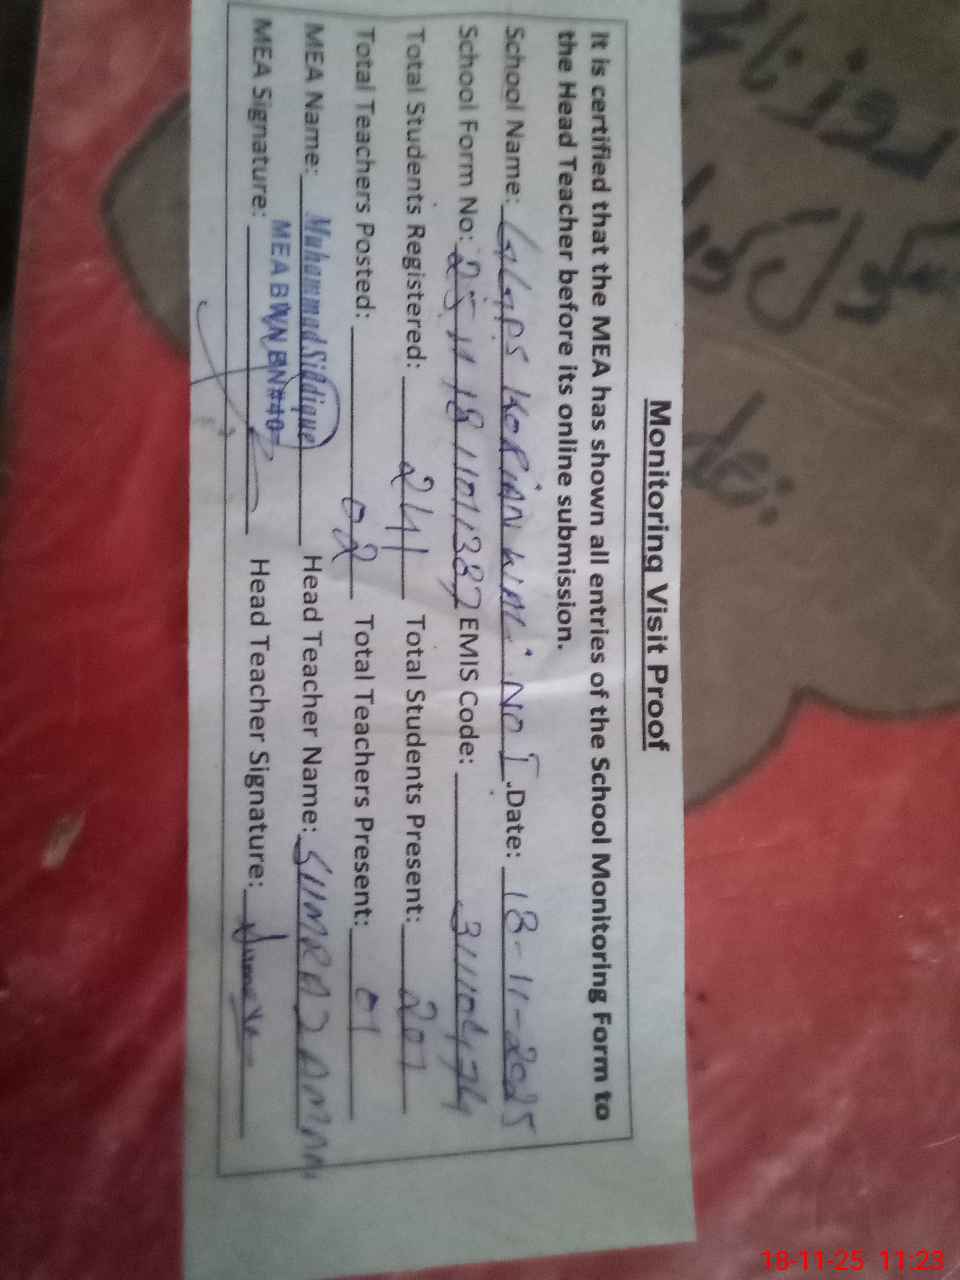 Monitoring Visit Proof
It is certified that the MEA has shown all entries of the School Monitoring Form to
the Head Teacher before its online submission.
School Name: NO I. Date: 18-11-2025
School Form No: EMIS Code: 31110474
Total Students Registered: 241 Total Students Present: 207
Total Teachers Posted: 02 Total Teachers Present: 01
MEA Name: Muhammad Siddique Head Teacher Name: SUMRA
MEA BWN BN#40
MEA Signature: Head Teacher Signature:
18-11-25 11:23